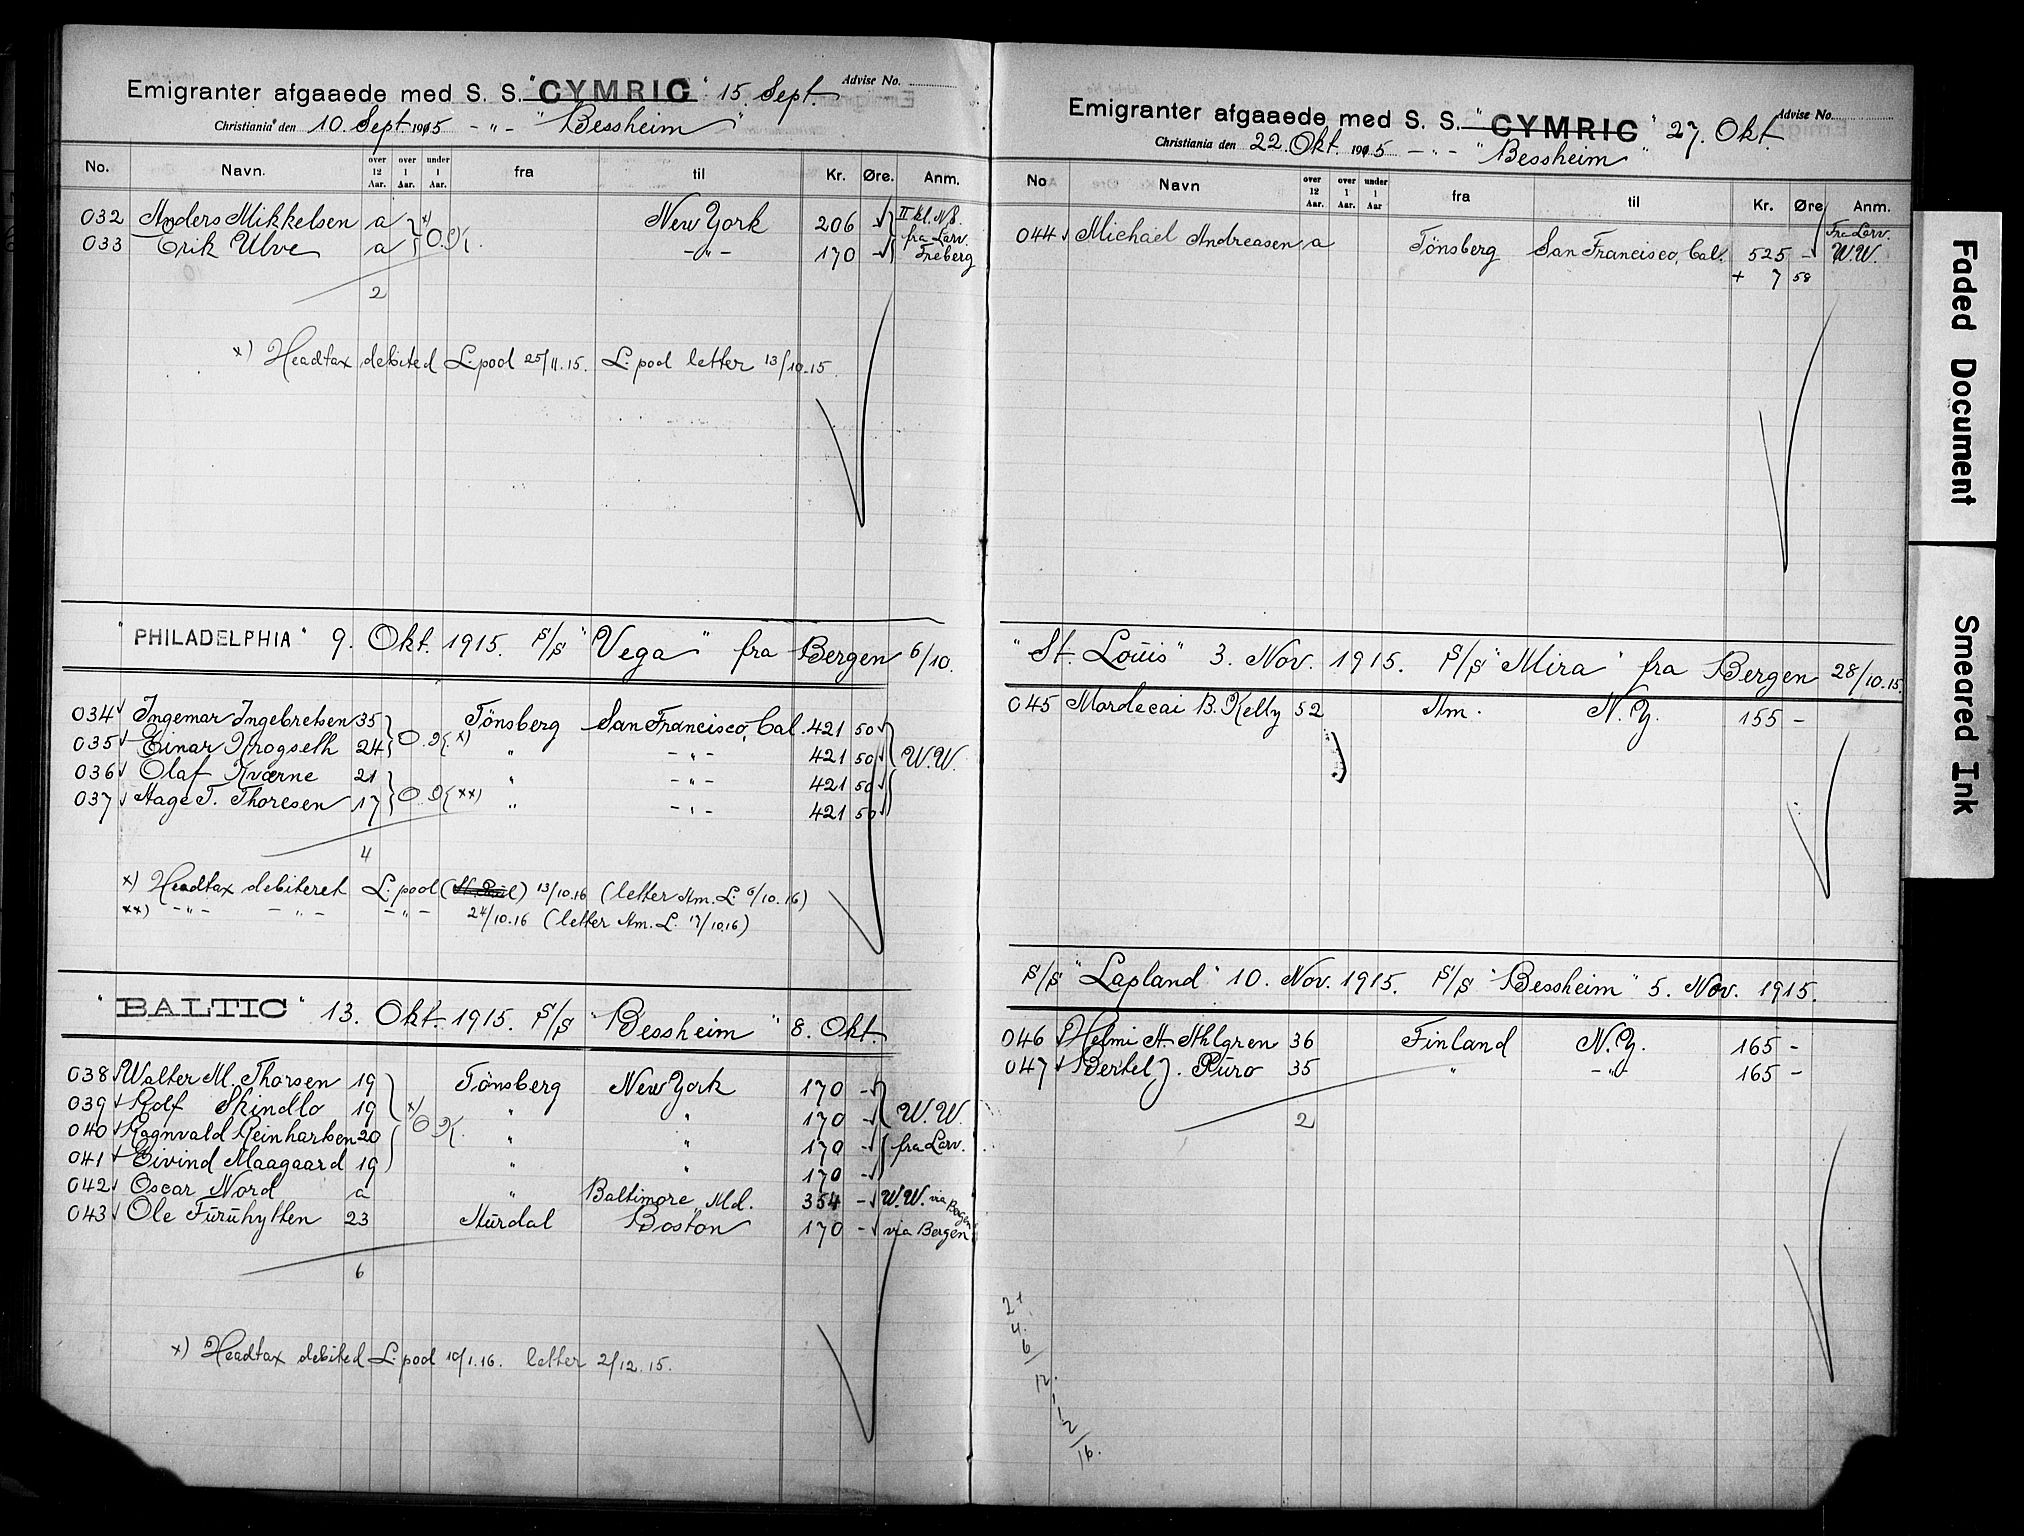 Emigranter afgaaede med S. S. "CYMRIC" 15. Sept. Advise No.
Christiania den 10. Sept. 1915 - " - "Bessheim"
No. Navn. over 12 Aar. over 1 Aar. under 1 Aar. fra til Kr. Øre. Anm.
032 Anders Mikkelsen a x) New York 206 - II kl. N.B.
033 Erik Ulve a O.K. - " - 170 - fra Larv. Treberg
2
x) Headtax debited L.pool 25/11.15. L.pool letter 13/10.15.
"PHILADELPHIA" 9. Okt. 1915. S/S "Vega" fra Bergen 6/10.
034 Ingemar Ingebretsen 35 Tönsberg San Francisco, Cal. 421 50
035 Einar Krogseth 24 O.K. x) " - " - 421 50 W.W.
036 Olaf Kværne 21 " - " - 421 50
037 Aage T. Thoresen 17 O.K. xx) " - " - 421 50
4
x) Headtax debiteret L.pool 13/10.16 (letter Am.L. 6/10.16)
xx) - " - - " - - " - 24/10.16 (letter Am.L. 17/10.16)
"BALTIC" 13. Okt. 1915. S/S "Bessheim" 8. Okt.
038 Walter M. Thorsen 19 Tönsberg New York 170 -
039 Rolf Skindlo 19 x) " " 170 - W.W.
040 Ragnvald Reinhartsen 20 O.K. " " 170 - fra Larv.
041 Eivind Maagaard 19 " " 170 -
042 Oscar Nord a " Baltimore, Md. 354 - W.W. via Bergen
043 Ole Furuhytten 23 Aurdal Boston 170 - via Bergen
6
x) Headtax debited L.pool 10/1.16. letter 2/12.15.
Emigranter afgaaede med S. S. "CYMRIC" 27. Okt. Advise No.
Christiania den 22. Okt. 1915 - " - "Bessheim"
No Navn over 12 Aar. over 1 Aar. under 1 Aar fra til Kr. Øre Anm.
044 Michael Andreasen a Tönsberg San Francisco, Cal. 525 - Fra Larv. W.W.
+ 7 58
"St. Louis" 3. Nov. 1915. S/S "Mira" fra Bergen 28/10.15.
045 Mordecai B. Kelly 52 Am. N.Y. 155 -
S/S "Lapland" 10. Nov. 1915. S/S "Bessheim" 5. Nov. 1915.
046 Helmi A. Ahlgren 36 Finland N.Y. 165 -
047 Bertel J. Puro 35 " - " - 165 -
2
2
4
6
12.
1
1
2
16.
Faded Document
Smeared Ink